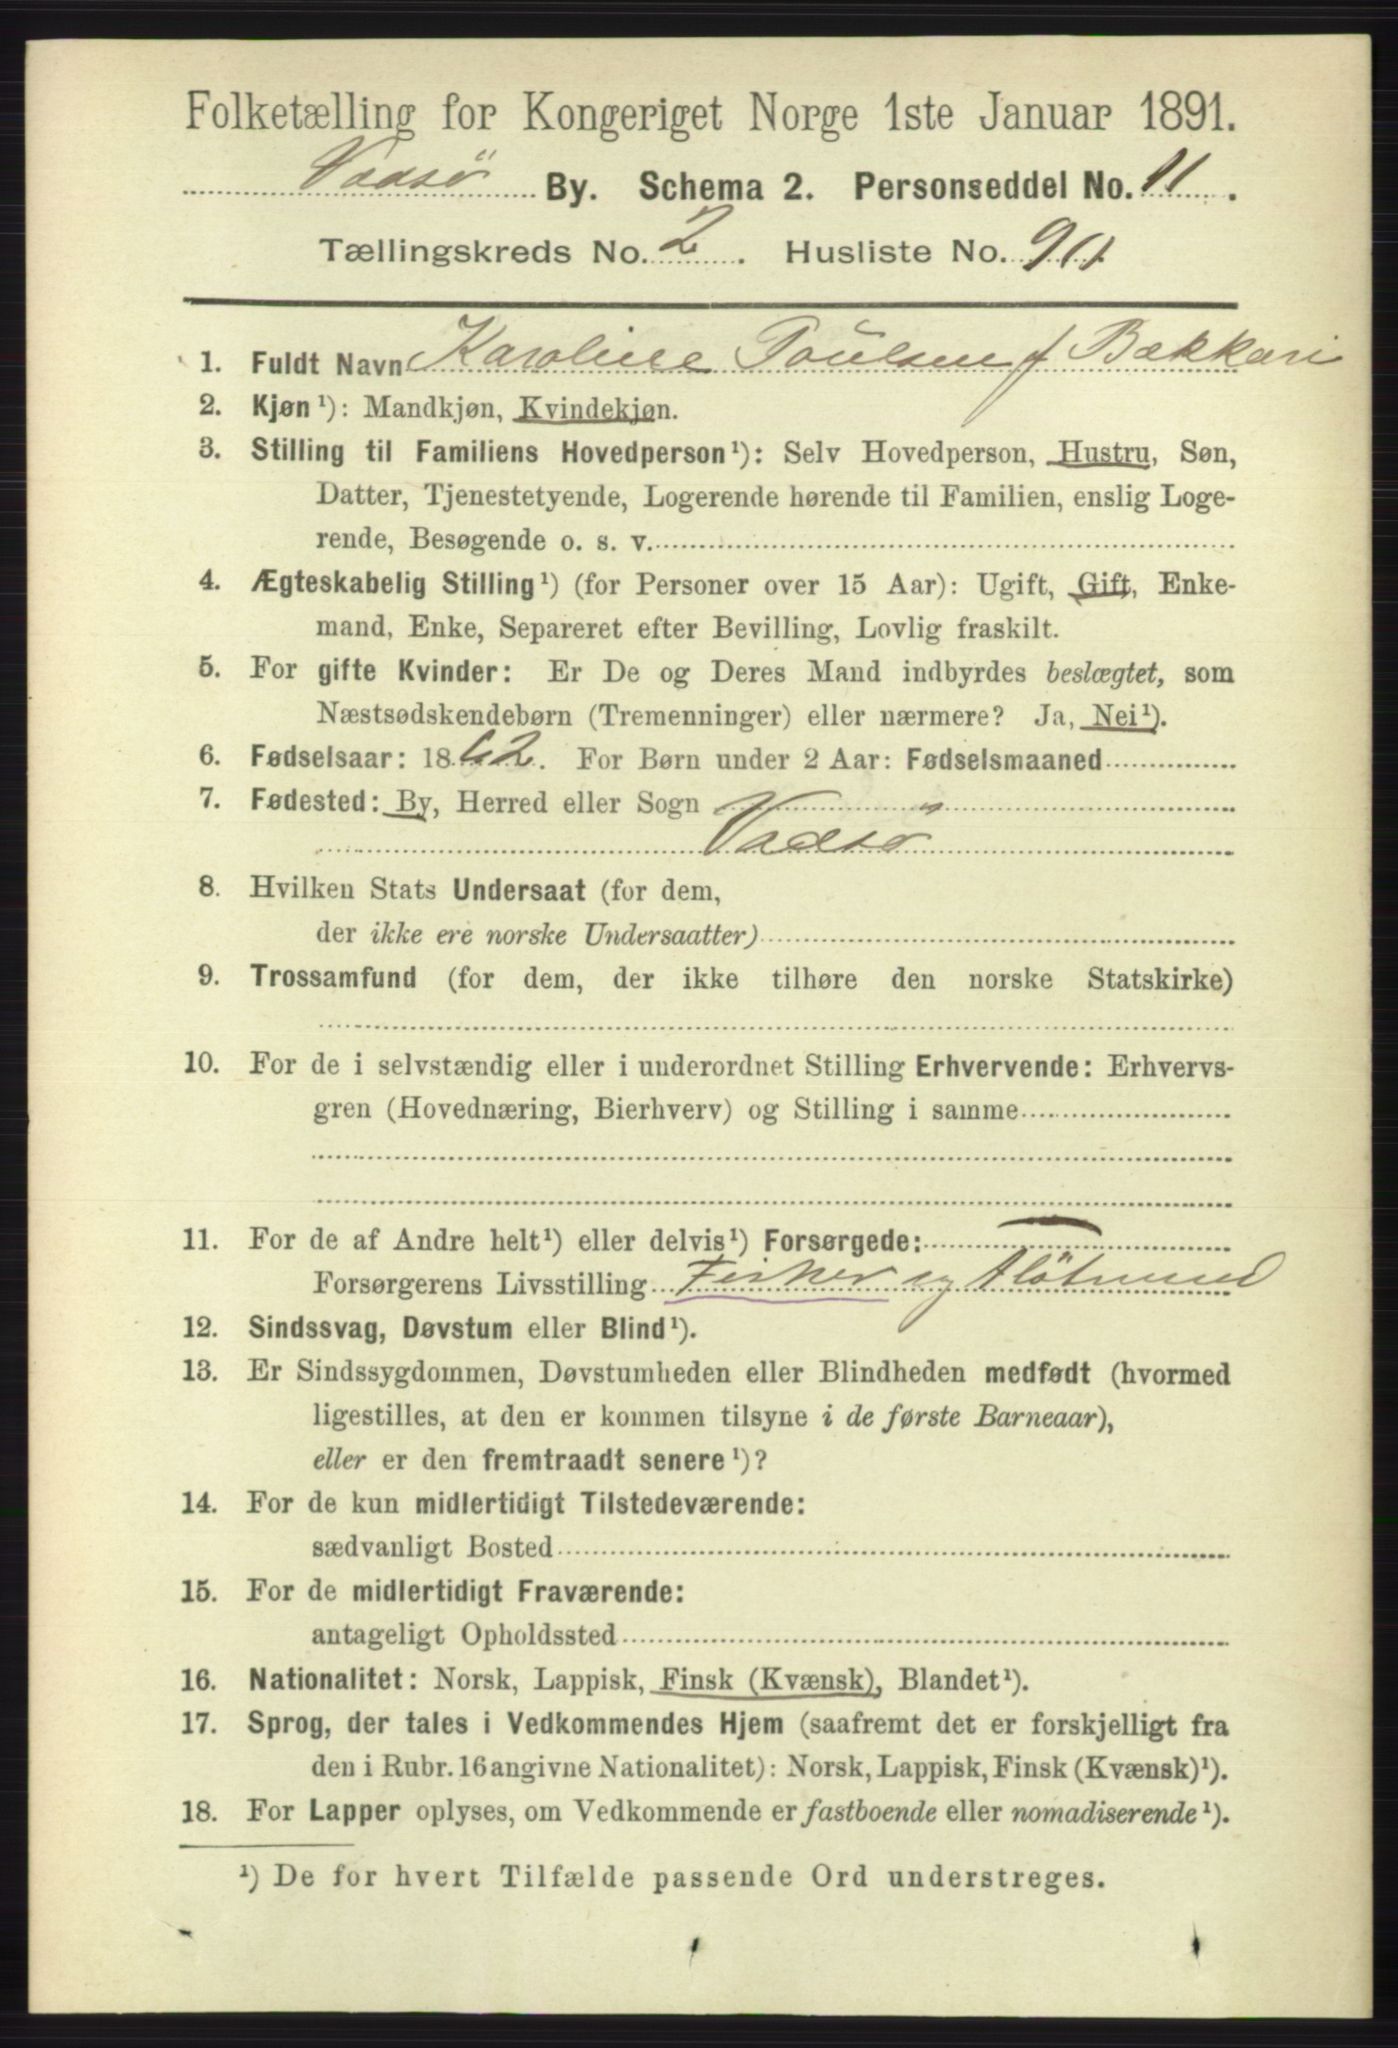 Folketælling for Kongeriget Norge 1ste Januar 1891.
Vadsö By. Schema 2. Personseddel No. 11.
Tællingskreds No. 2. Husliste No.
1. Fuldt Navn Karoline Poulsen f Bækkari
2. Kjøn¹): Mandkjøn, Kvindekjøn.
3. Stilling til Familiens Hovedperson¹): Selv Hovedperson, Hustru, Søn,
Datter, Tjenestetyende, Logerende hørende til Familien, enslig Loge-
rende, Besøgende o. s. v.
4. Ægteskabelig Stilling¹) (for Personer over 15 Aar): Ugift, Gift, Enke-
mand, Enke, Separeret efter Bevilling, Lovlig fraskilt.
5. For gifte Kvinder: Er De og Deres Mand indbyrdes beslægtet, som
Næstsødskendebørn (Tremenninger) eller nærmere? Ja, Nei¹).
6. Fødselsaar: 1862. For Børn under 2 Aar: Fødselsmaaned
7. Fødested: By, Herred eller Sogn
Vadsö
8. Hvilken Stats Undersaat (for dem,
der ikke ere norske Undersaatter)
9. Trossamfund (for dem, der ikke tilhøre den norske Statskirke)
10. For de i selvstændig eller i underordnet Stilling Erhvervende: Erhvervs-
gren (Hovednæring, Bierhverv) og Stilling i samme
11. For de af Andre helt¹) eller delvis¹) Forsørgede:
Forsørgerens Livsstilling Fisker og Flötmand
12. Sindssvag, Døvstum eller Blind¹).
13. Er Sindssygdommen, Døvstumheden eller Blindheden medfødt (hvormed
ligestilles, at den er kommen tilsyne i de første Barneaar),
eller er den fremtraadt senere¹)?
14. For de kun midlertidigt Tilstedeværende:
sædvanligt Bosted
15. For de midlertidigt Fraværende:
antageligt Opholdssted
16. Nationalitet: Norsk, Lappisk, Finsk (Kvænsk), Blandet¹).
17. Sprog, der tales i Vedkommendes Hjem (saafremt det er forskjelligt fra
den i Rubr. 16 angivne Nationalitet): Norsk, Lappisk, Finsk (Kvænsk)¹).
18. For Lapper oplyses, om Vedkommende er fastboende eller nomadiserende¹).
¹) De for hvert Tilfælde passende Ord understreges.